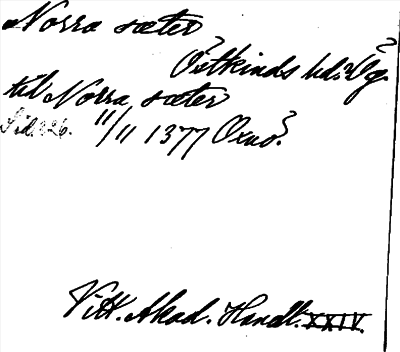 Norra sæter
Östkinds hd? Ög.
til Norra sæter
Sid. 326. 11/11 1377 Oxnö?
Vitt. Akad. Handl. XXIV.